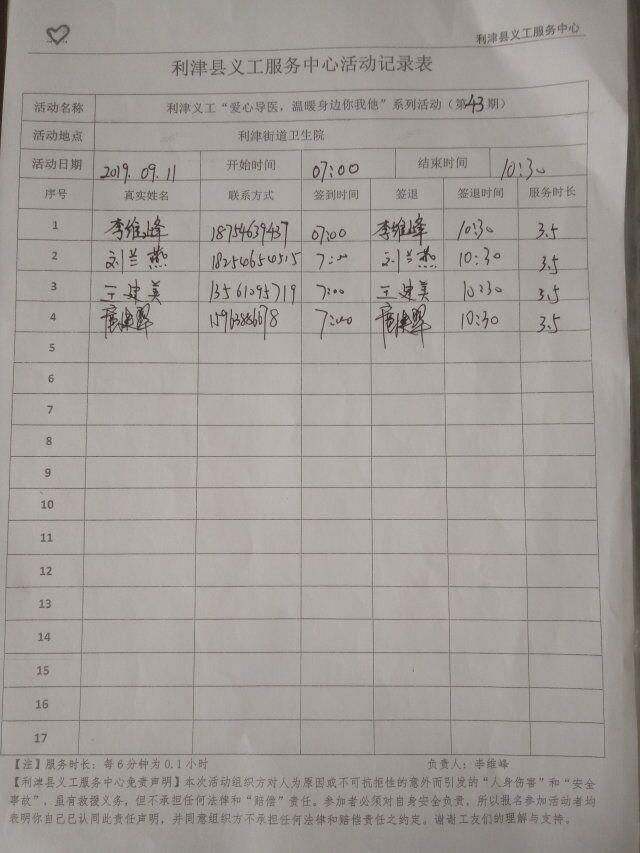 利津县义工服务中心
利津县义工服务中心活动记录表
活动名称 利津义工“爱心导医，温暖身边你我他”系列活动（第43期）
活动地点 利津街道卫生院
活动日期 2019.09.11 开始时间 07:00 结束时间 10:30
序号 真实姓名 联系方式 签到时间 签退 签退时间 服务时长
1 李维峰 18754639437 07:00 李维峰 10:30 3.5
2 刘兰燕 18254654515 7:00 刘兰燕 10:30 3.5
3 王建美 13561095719 7:00 王建美 10:30 3.5
4 7:00 10:30 3.5
5
6
7
8
9
10
11
12
13
14
15
16
17
【注】服务时长：每6分钟为0.1小时 负责人：李维峰
【利津县义工服务中心免责声明】本次活动组织方对人为原因或不可抗拒性的意外而引发的“人身伤害”和“安全
事故”，虽有救援义务，但不承担任何法律和“赔偿”责任。参加者必须对自身安全负责，所以报名参加活动者均
表明你自己已认同此责任声明，并同意组织方不承担任何法律和赔偿责任之约定。谢谢工友们的理解与支持。